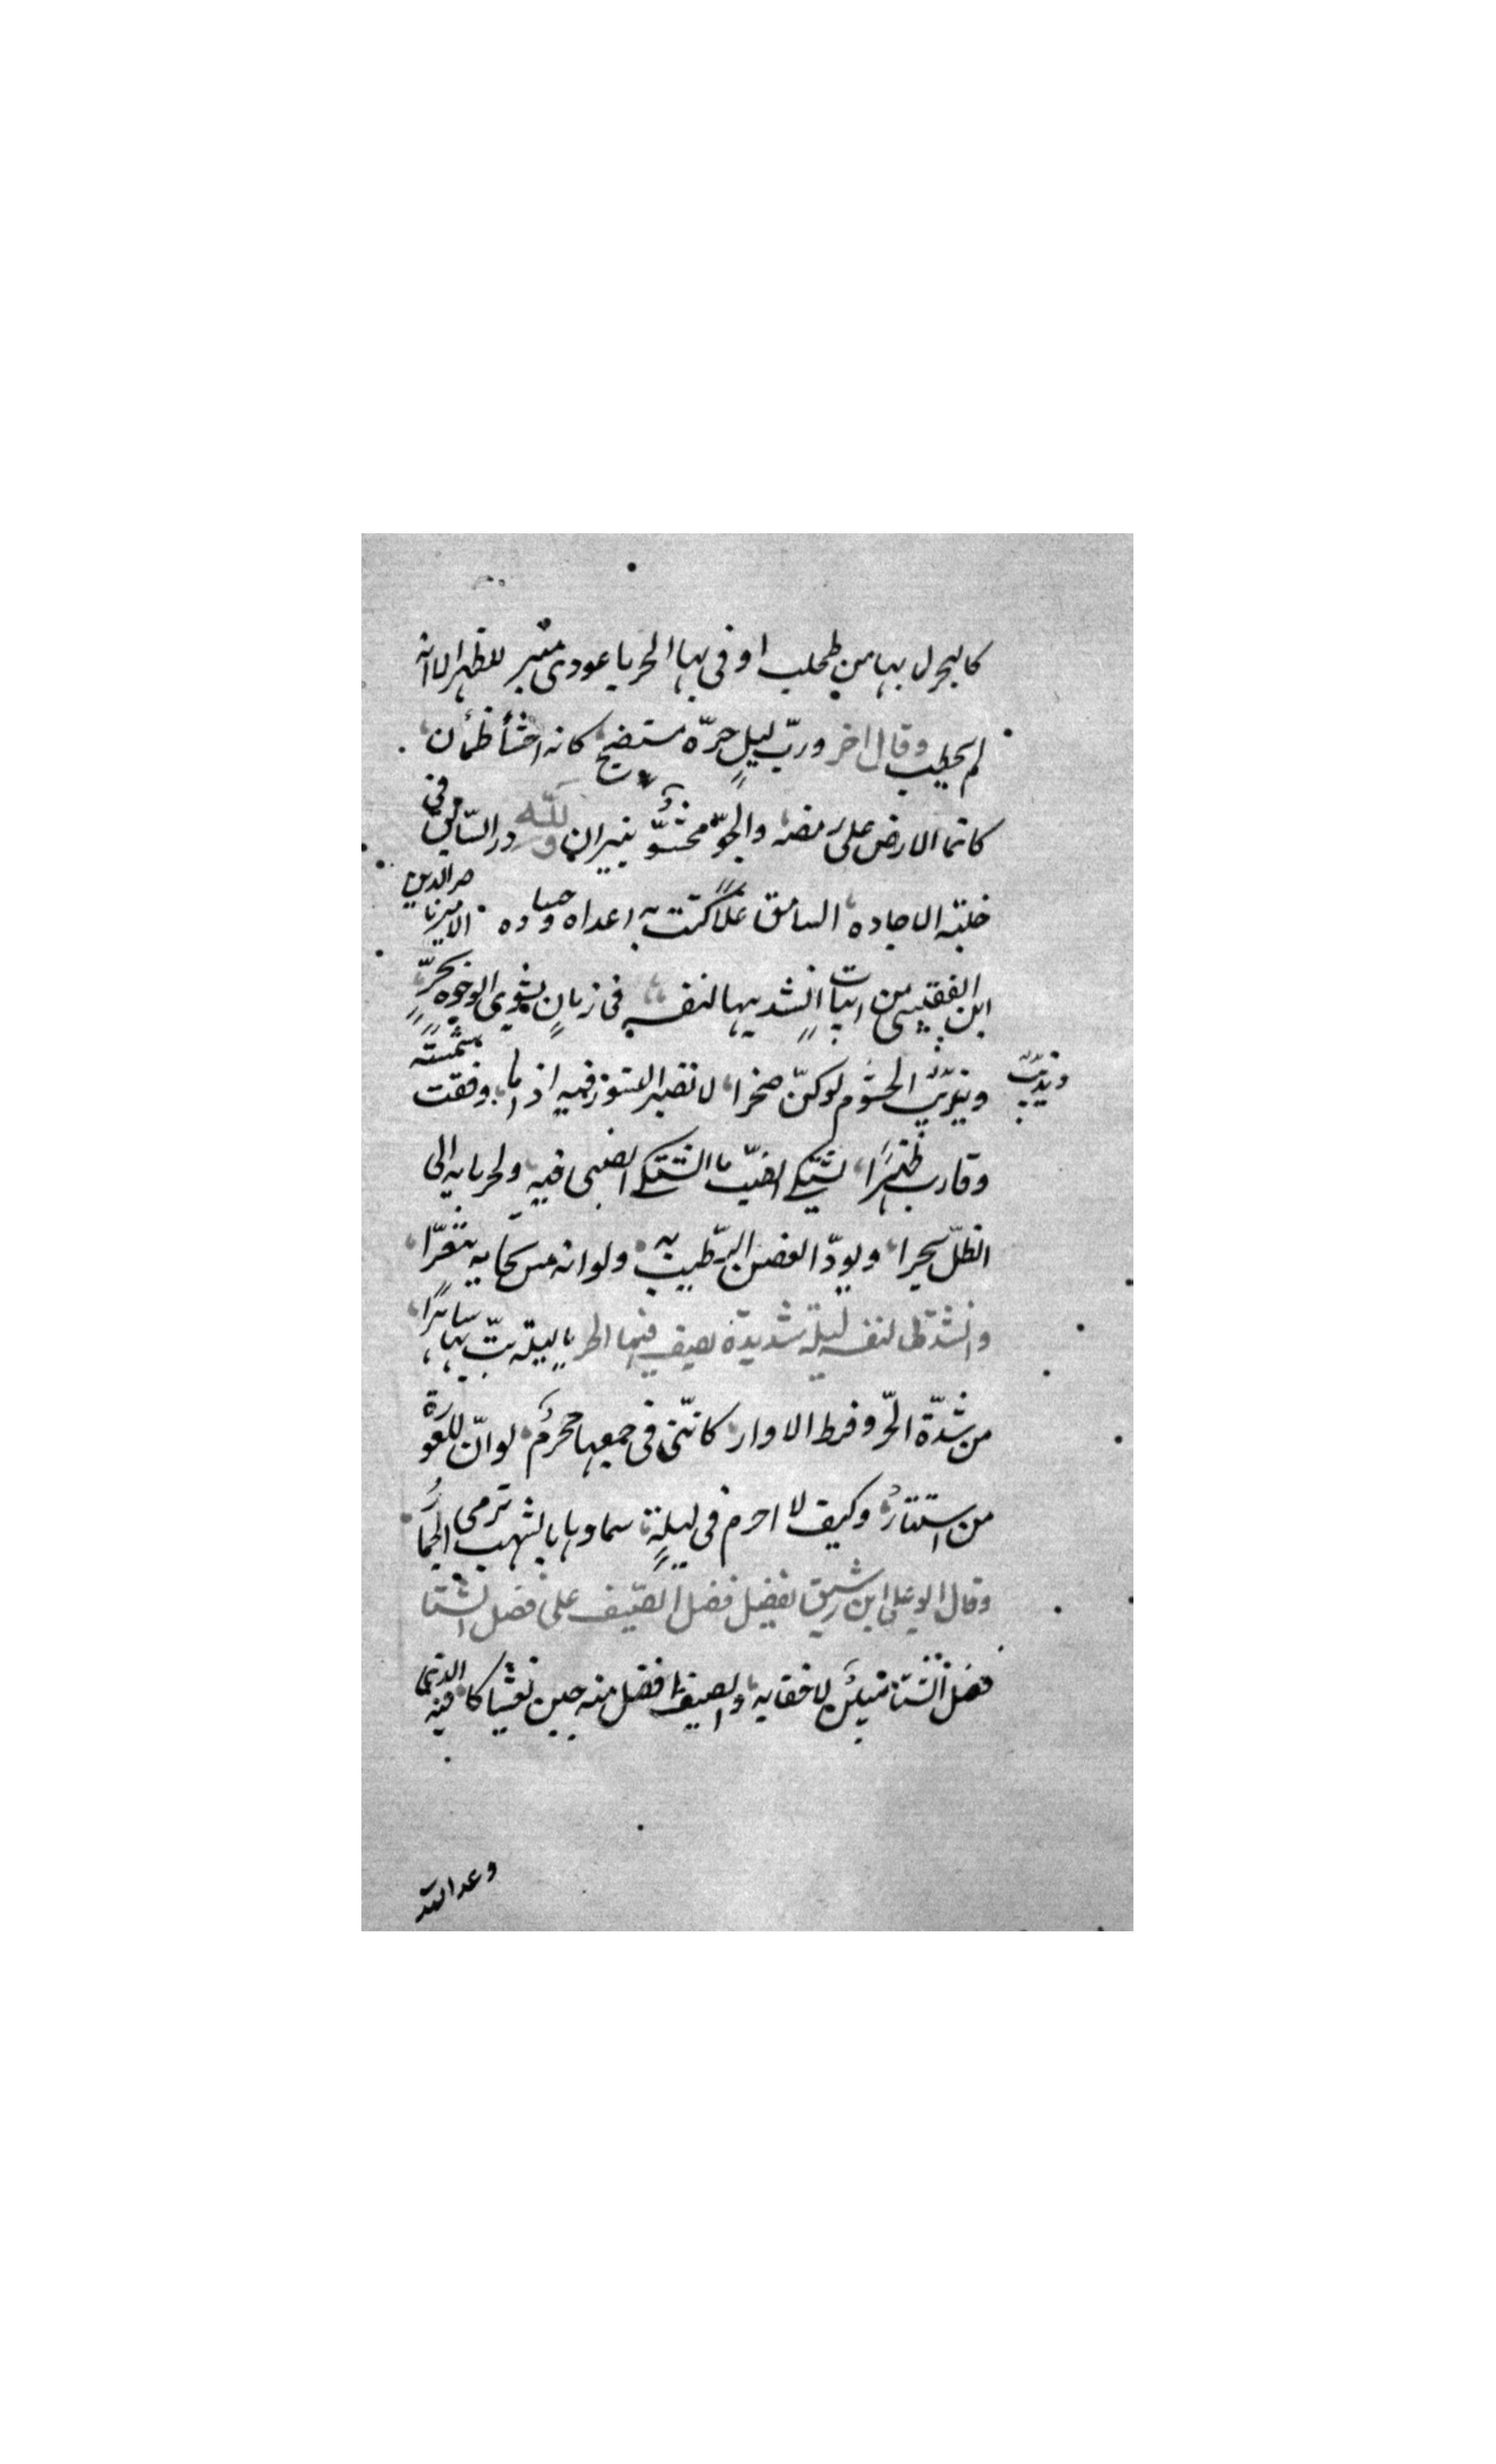 كالبحر لا بها من طحلب اوفى بها الحربا عودى منبر للظهر الا انه
لم يخطب وقال اخر ورب ليلٍ حرّه مستنضج كانه احشأ ظمأن
كانما الارض على رمضه والجوّ محشوٌّ بنيران ولله در السّابق فى
حلبة الاجاده السامق علاً كبتت به اعداه وحساده الامير ناصر الدين
ابن الفقيسى من ابياتٍ انشديها لنفسه فى زمانٍ يشوى الوجوه بحرٍّ
ويذيبُ الجسوم لو كنّ صخرا لا تضير النسور فيه اذا ما وقفت شمسه
ويذيبُ
وقارب ظهرًا يشتكى الضبّ ما اشتكى الصبى فيه ولحربايه الى
الظلّ سحرا ويودّ الغصن الرّطيب به ولو انه من لحايه يتعرّا
وانشدنى لنفسه ليلة شديدة يصف فيها الحر يا ليلة بتّ بها ساهرًا
من شدّة الحرّ وفرط الاوار كانّنى فى جمعها محرمٌ لو انّ للعورة
من استتارُ وكيف لا احرم فى ليلةٍ سماوها بالشهب ترمى الجمارُ
وقال ابو على ابن رشيق يفضل فصل الصيف على فصل الشتا
فصل الشتا مبينٌ لا خفا به والصيف افضل منه حين تغشاكا فيه الذى
وعد الله